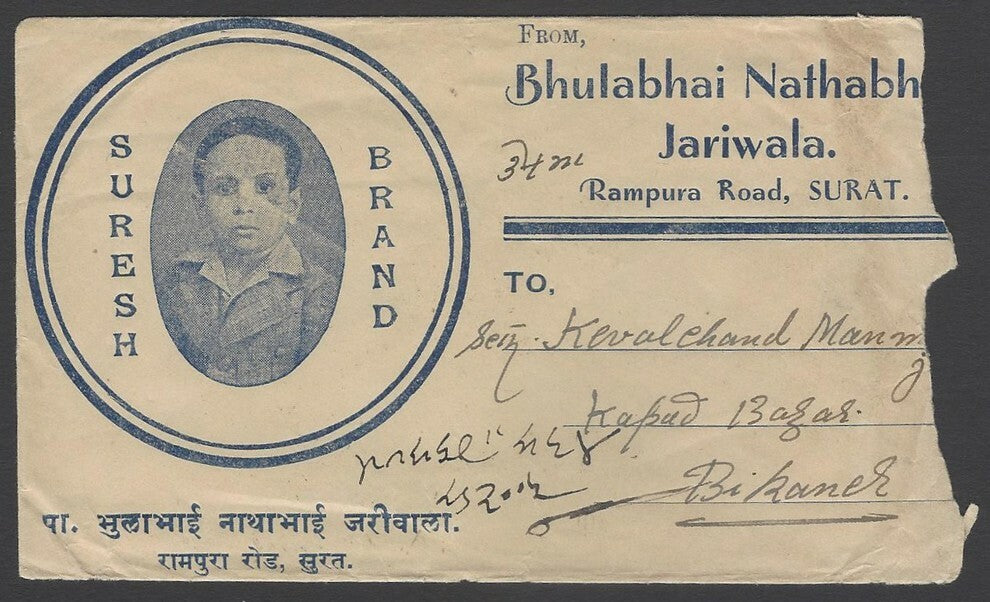 SURESH
BRAND
FROM,
Bhulabhai Nathabh
Jariwala.
Rampura Road, SURAT.
TO,
Kevalchand
Kapad Bazar.
Bikaner
पा. भुलाभाई नाथाभाई जरीवाला.
रामपुरा रोड, सुरत.